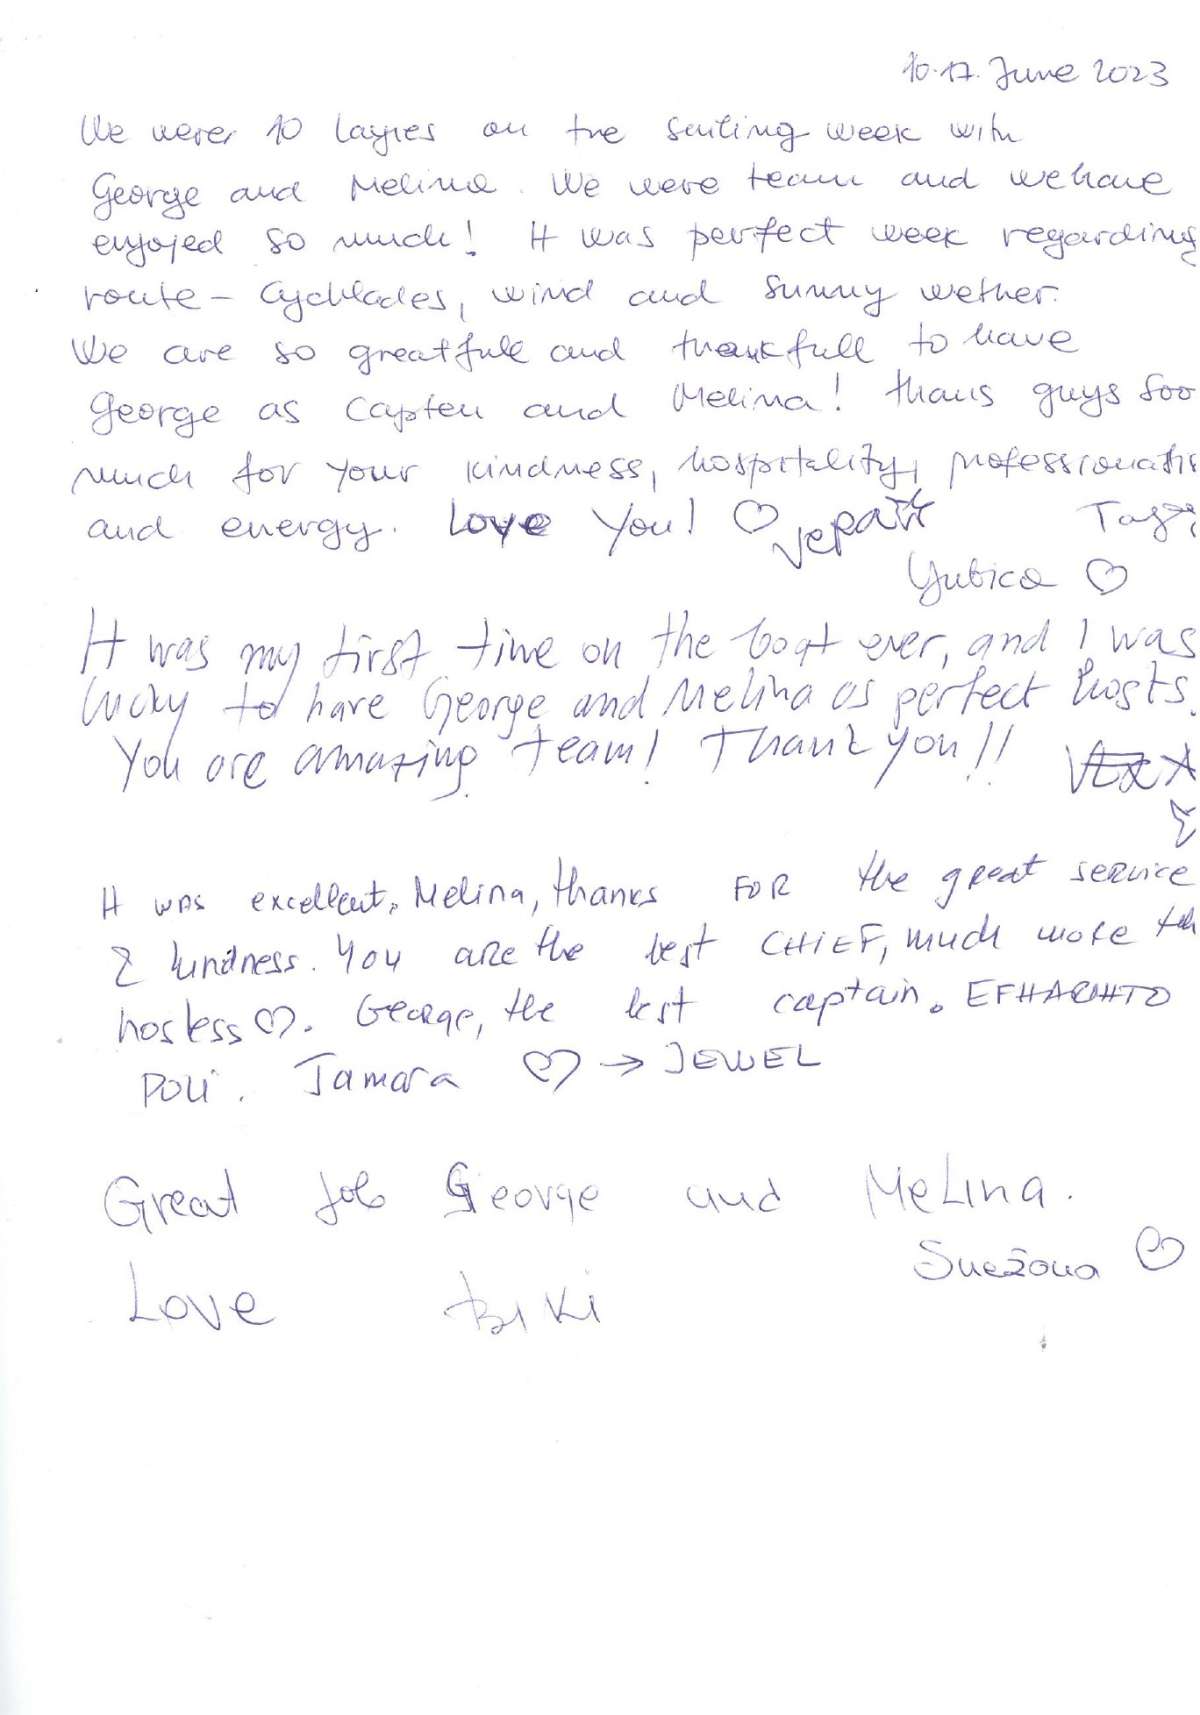 10.-17. June 2023
We were 10 layies on the sailing week with
George and Melina. We were team and we have
enjojed so much! It was perfect week regarding
route - Cycklades, wind and sunny wether.
We are so greatfull and thankfull to have
George as Capten and Melina! thans guys soo
much for your kindness, hospitality,
and energy. Love You! ♡
Ljubica ♡
It was my first time on the boat ever, and I was
lucky to have George and Melina as perfect hosts.
You are amazing team! Thank you!!
It was excellent, Melina, thanks FOR the great service
& kindness. You are the best CHIEF, much more
hostess ♡. George, the best captain. EFHARIHTO
POLI. Tamara ♡ → JEWEL
Great job George and Melina.
Snežana ♡
Love BIKI